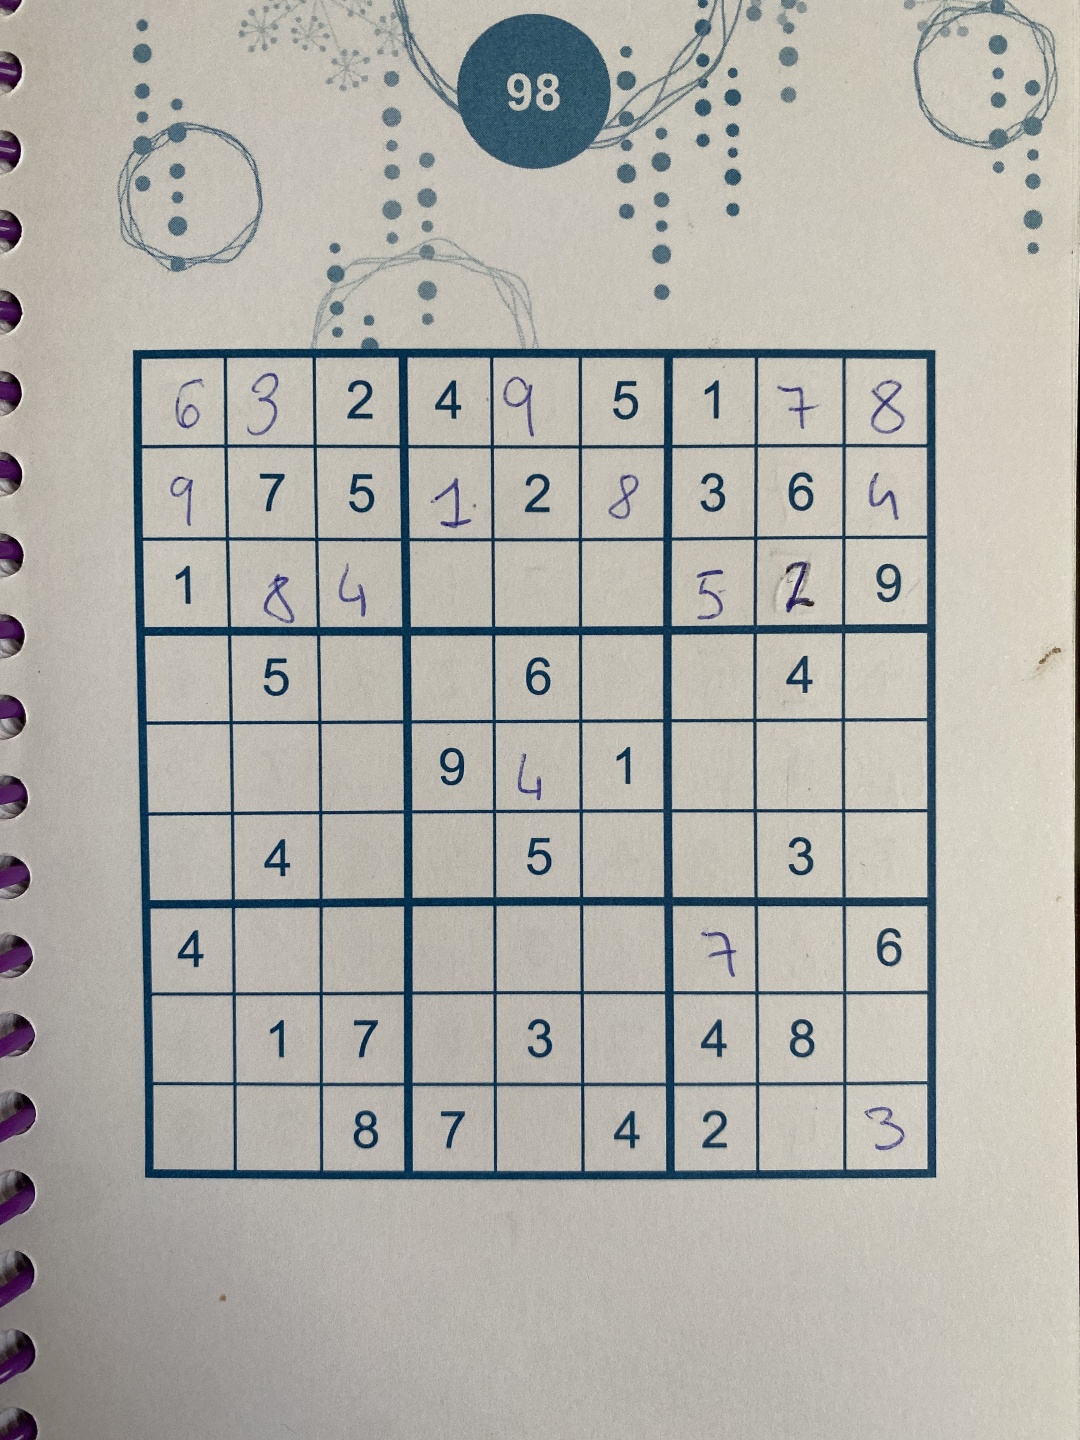 98
6 3 2 4 9 5 1 7 8
9 7 5 1 2 8 3 6 4
1 8 4 5 2 9
5 6 4
9 4 1
4 5 3
4 7 6
1 7 3 4 8
8 7 4 2 3